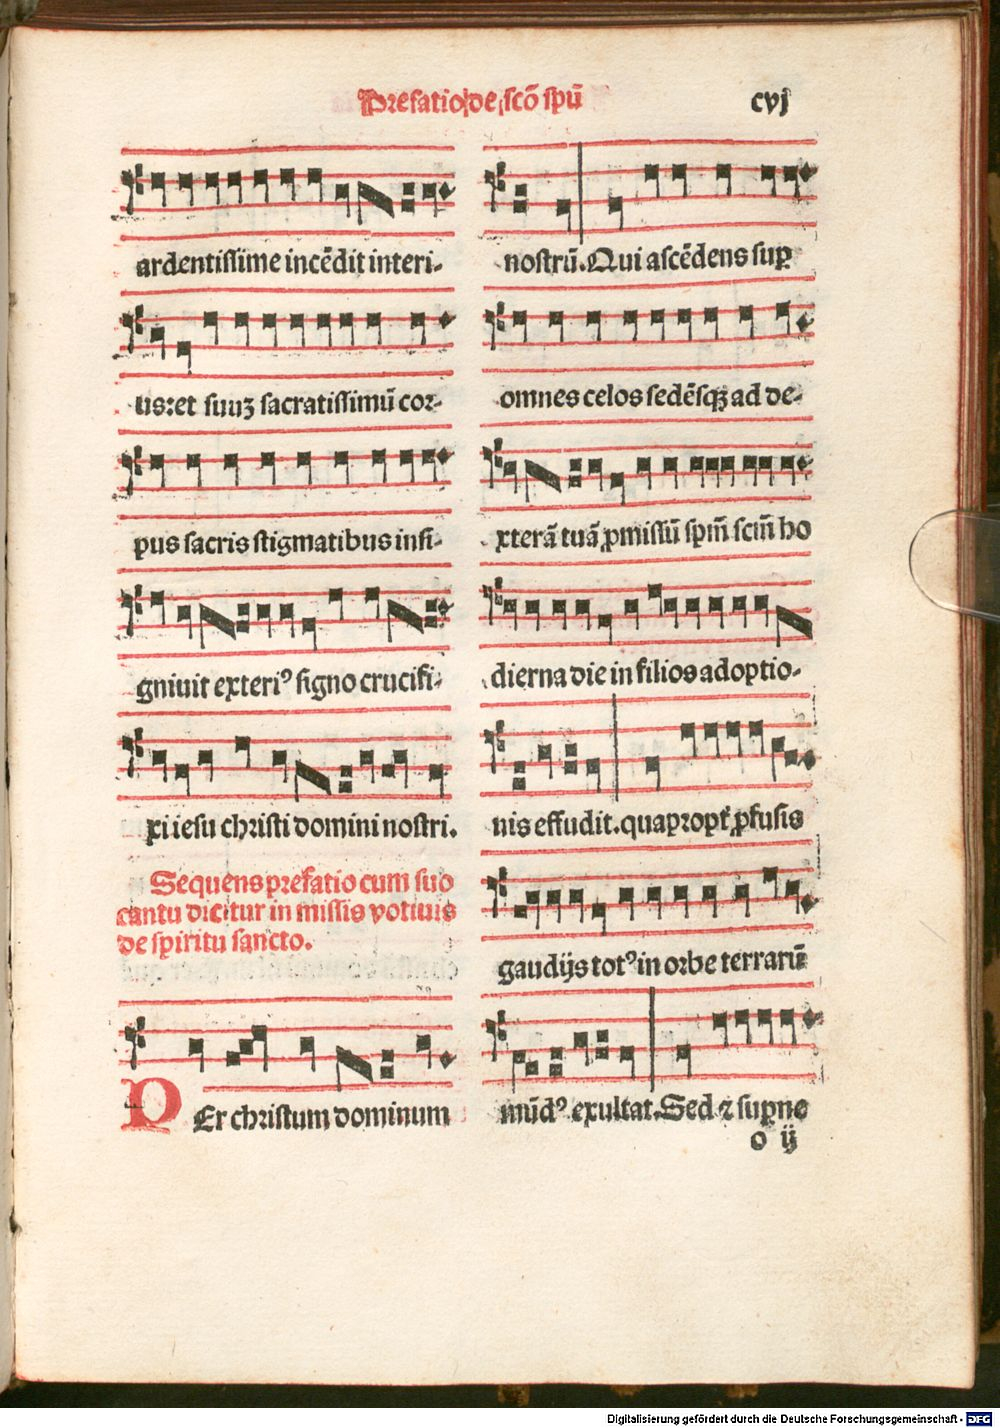 Prefatio de scō spū
cvj
ardentissime incēdit interi-
us: et suuꝫ sacratissimū cor-
pus sacris stigmatibus insi-
gniuit exteriꝰ signo crucifi-
xi iesu christi domini nostri.
Sequens prefatio cum suo
cantu dicitur in missis votiuis
de spiritu sancto.
PEr christum dominum
nostrū. Qui ascēdens suꝑ
omnes celos sedēsqꝫ ad de-
xterā tuā ꝓmissū spm̄ scm̄ ho
dierna die in filios adoptio-
nis effudit. quapropt̓ ꝓfusis
gaudijs totꝰ in orbe terrarū
mūdꝰ exultat. Sed ⁊ suꝑne
o ij
Digitalisierung gefördert durch die Deutsche Forschungsgemeinschaft - DFG